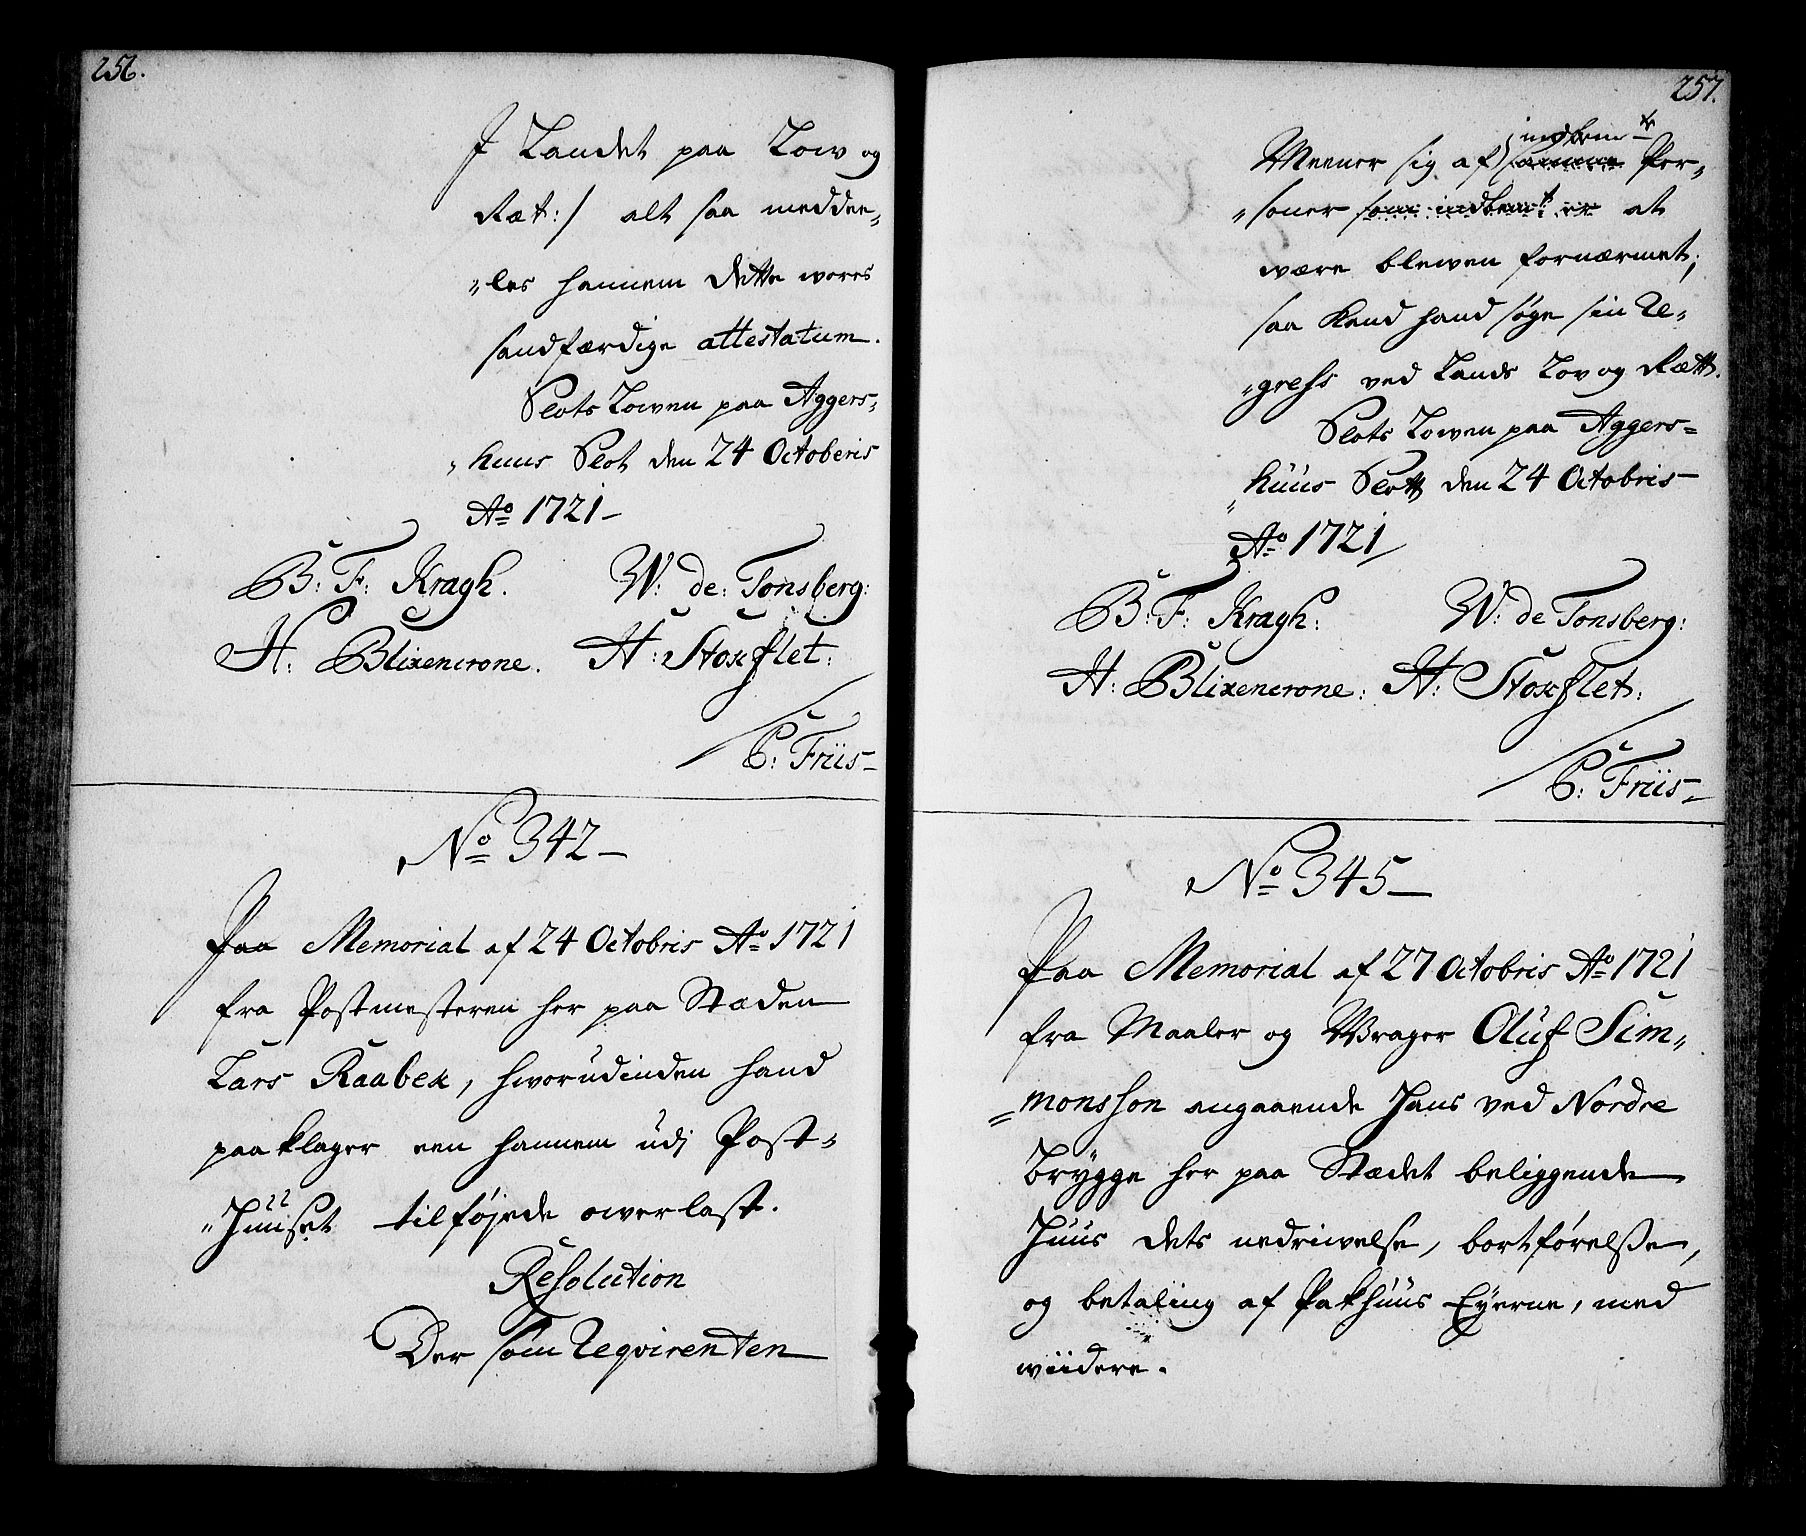 256.
J Landet paa Low og
Ræt:/ alt saa meddee„
„les hannem dette wores
sandfærdige attestatum.
Slots Lowen paa Aggers„
„huus Slot den 24 Octoberis
Aō 1721
B: F: Kragh. W: de: Tonsberg:
H: Blixencrone. H: Stoxflet:
/ C: Friis
No 342
Paa Memorial af 24 Octobris Ao 1721
fra Postmesteren her paa Stæden
Lars Raabex, hworudinden hand
paaklager een hannem udj Post„
„Huuset tilføjede owerlast.
Resolution
Der som Reqvirenten
257.
indbemte
Meener sig af samme Per„
„soner som indbemt er at
være blewen fornærmet;
saa kand hand søge sin Re„
„gress ved Lands Lov og Rætt.
Slots Lowen paa Aggers„
„huus Slott den 24 Octobris
Ao 1721
B: F: Kragh: W: de Tonsberg:
H: Blixencrone: H: Stoxflet:
/ C: Friis
No 345
Paa Memorial af 27 Octobris Ao 1721
fra Maaler og Wrager Oluf Sim„
„monsson angaaende Hans ved Nordre
Brygge her paa Stædet beliggende
Huus dets nedriwelse, bortførelsse,
og betaling af Pakhuus Eyerne, med
wiidere.